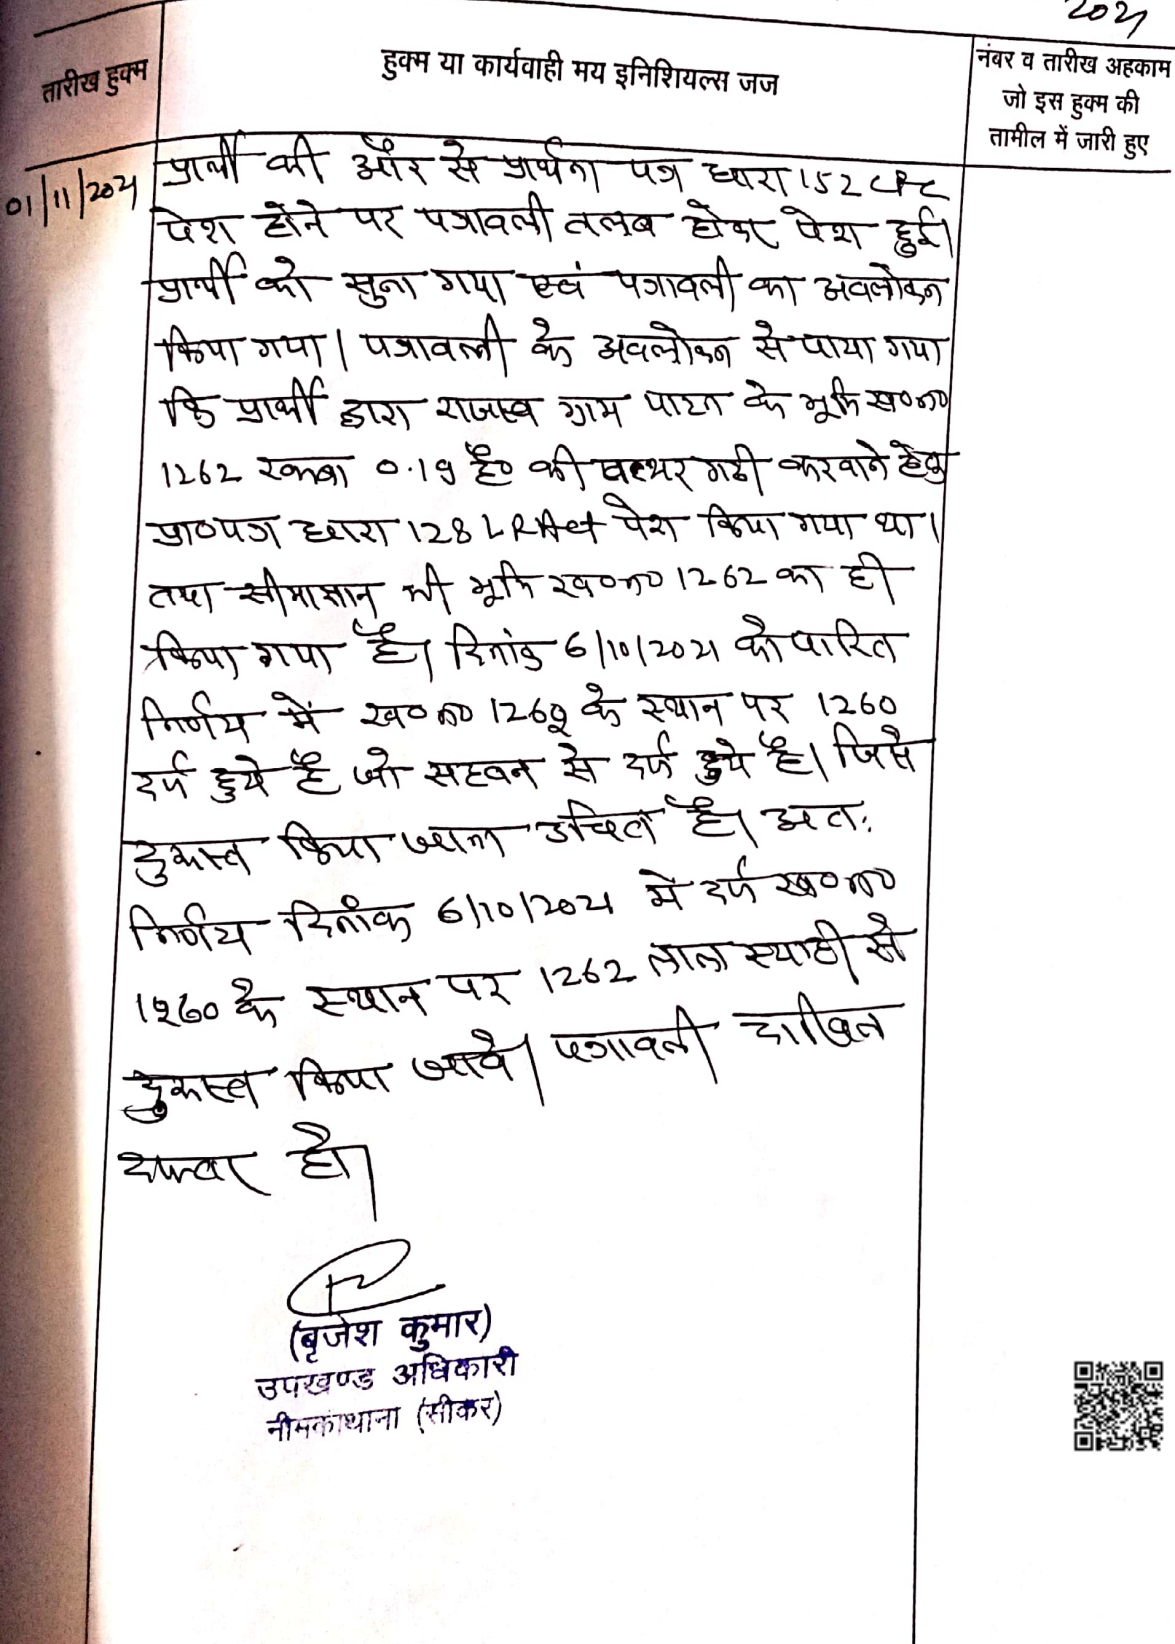 2021
तारीख हुक्म
हुक्म या कार्यवाही मय इनिशियल्स जज
नंबर व तारीख अहकाम
जो इस हुक्म की
तामील में जारी हुए
01/11/2021
प्रार्थी की और से प्रार्थना पत्र धारा 152 CPC
पेश होने पर पत्रावली तलब होकर पेश हुई।
प्रार्थी को सुना गया एवं पत्रावली का अवलोकन
किया गया। पत्रावली के अवलोकन से पाया गया
कि प्रार्थी द्वारा राजस्व ग्राम पाटन के भूमि ख०न०
1262 रकबा 0.19 है० की पत्थर गढी करवाने हेतु
प्रा०पत्र धारा 128 LRAct पेश किया गया था।
तथा सीमाज्ञान भी भूमि ख०न० 1262 का ही
किया गया है। दिनांक 6/10/2021 को पारित
निर्णय में ख०न० 1262 के स्थान पर 1260
दर्ज हुये है जो सहवन से दर्ज हुये है। जिसे
दुरूस्त किया जाना उचित है। अतः
निर्णय दिनांक 6/10/2021 में दर्ज ख०न०
1260 के स्थान पर 1262 लाल स्याही से
दुरूस्त किया जावे। पत्रावली दाखिल
दफ्तर हो।
(बृजेश कुमार)
उपखण्ड अधिकारी
नीमकाथाना (सीकर)